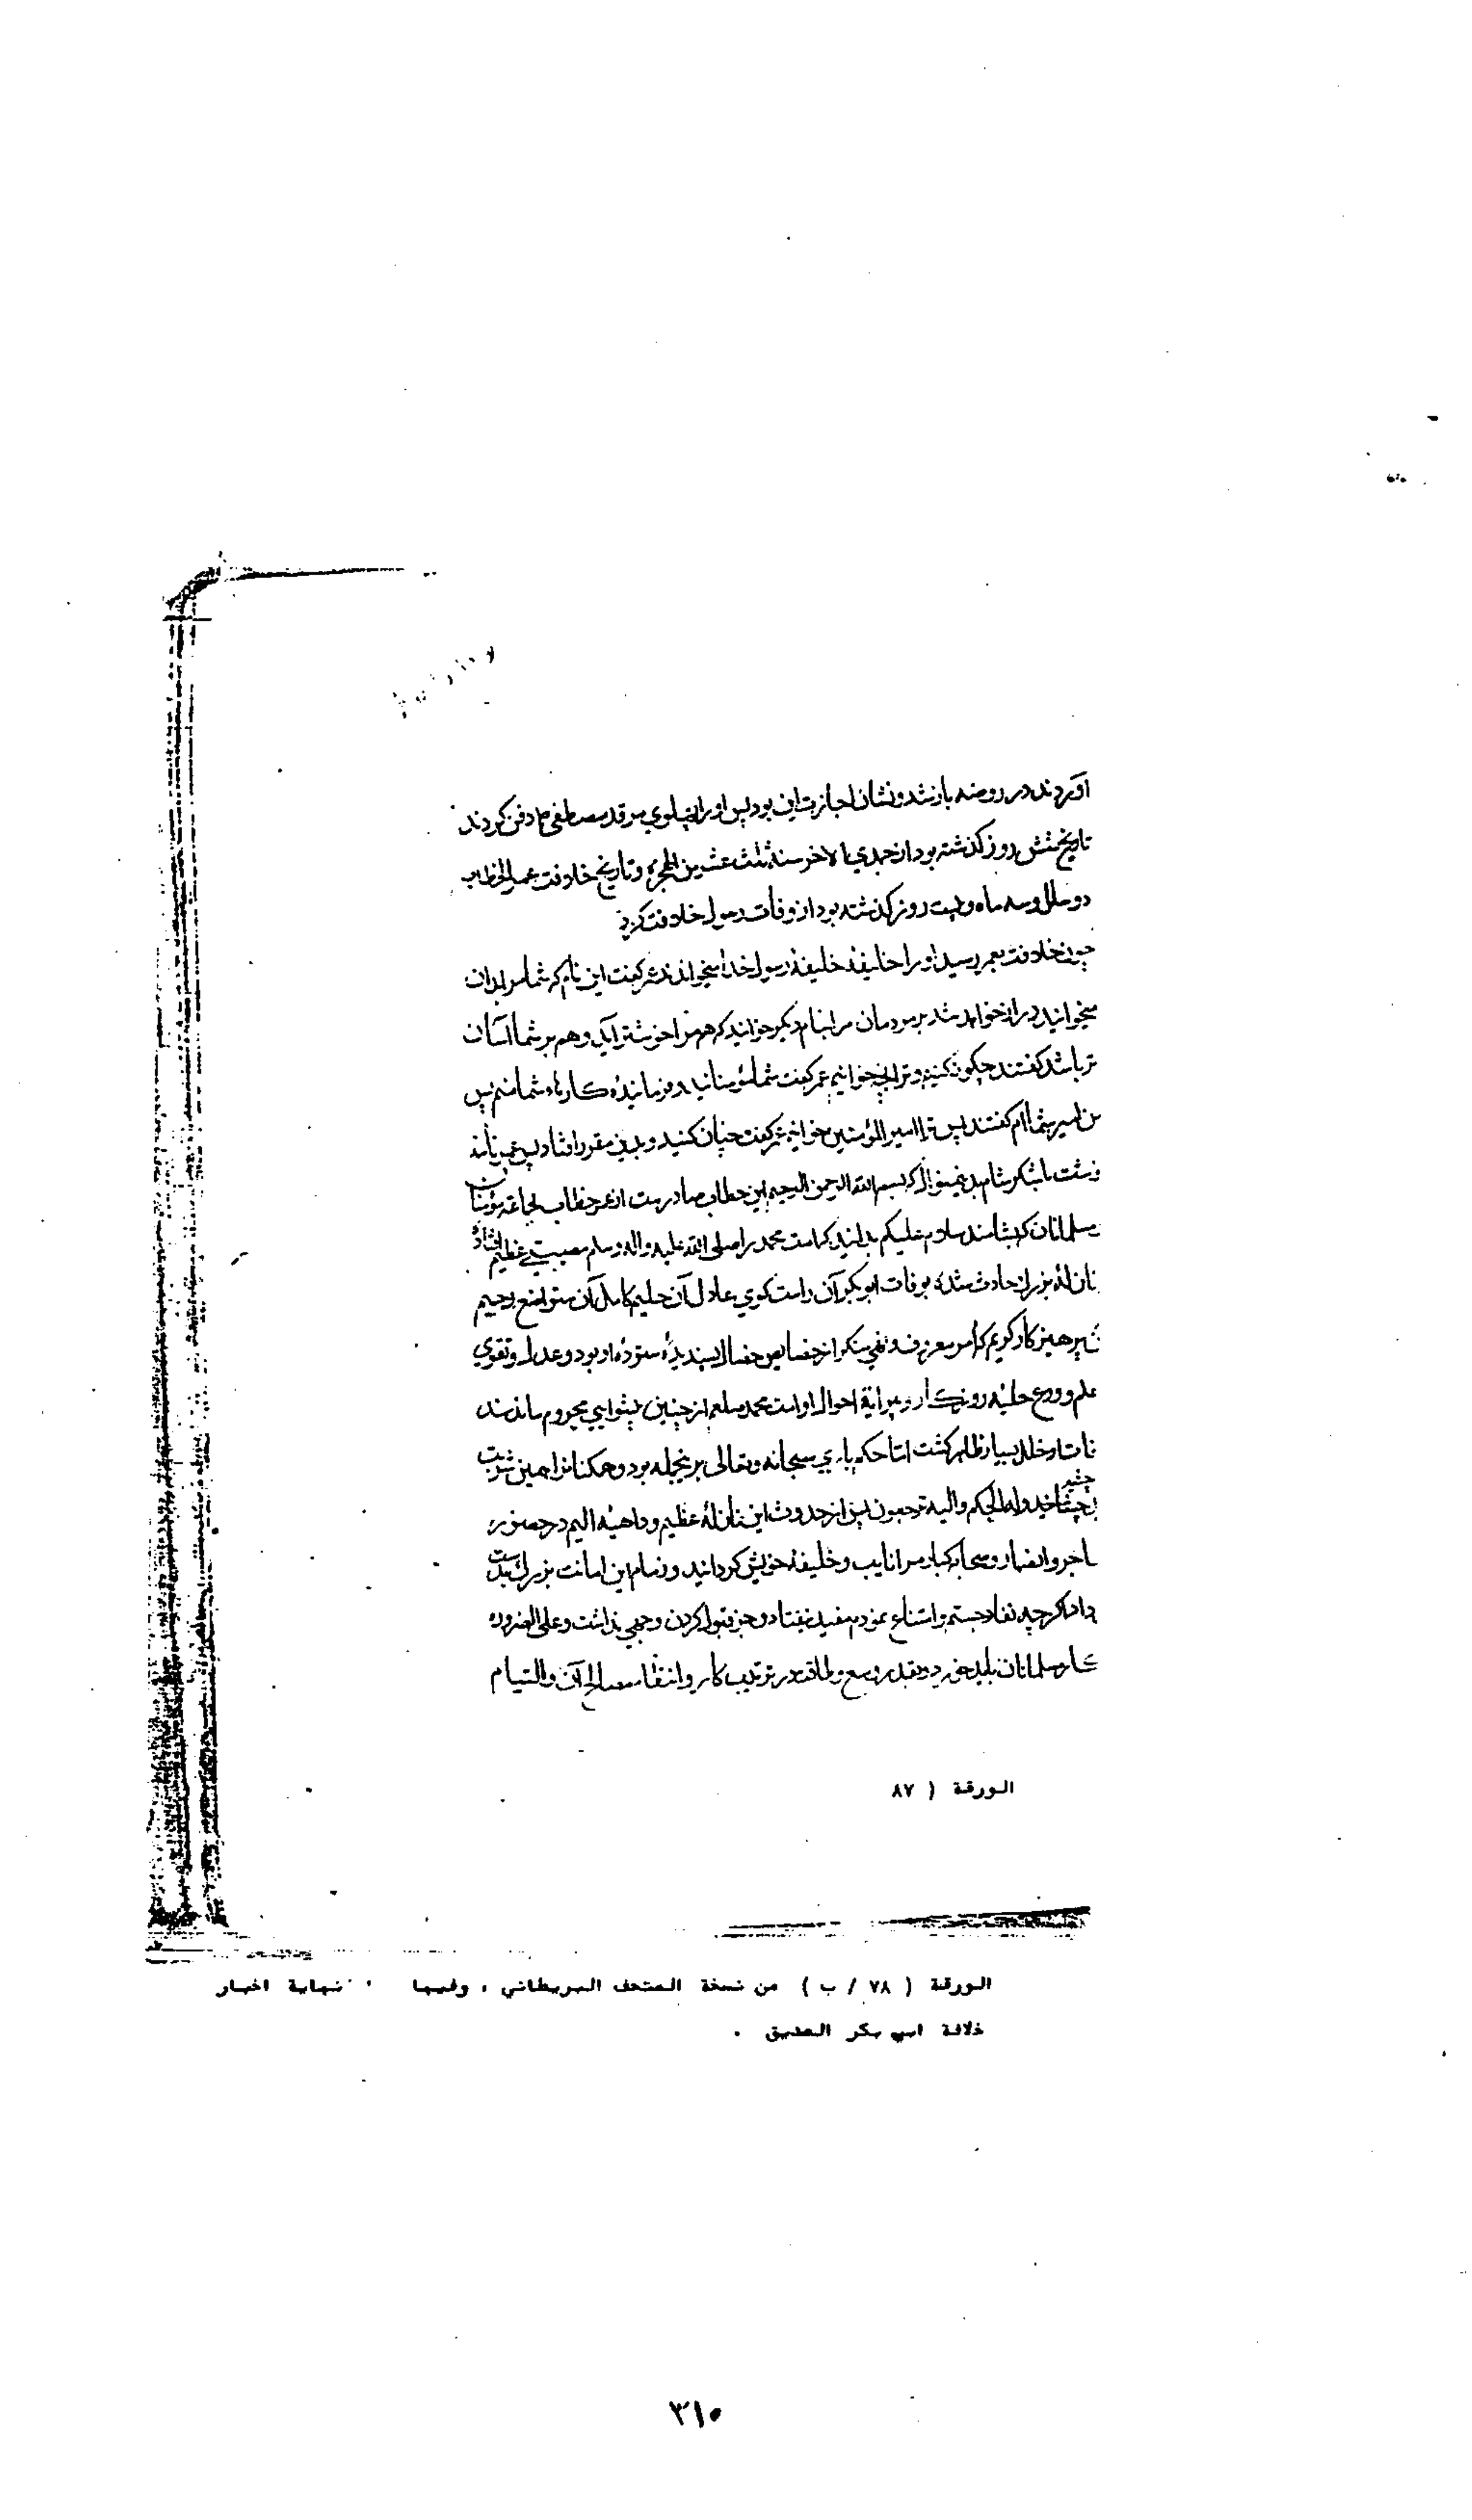 آوردند در روضه باز شد و نشان اجازت این بود پس او را بپهلوی مرقد مصطفی دفن کردند
تاریخ شش روز کذشته بود از جمدی الاخر سنه ثلث عشر من الهجره و تاریخ خلافت عمر الخطاب
دو سال و سه ماه و بیست روز کذشته بود از وفات رسول خلافت کرد
چون خلافت بعمر رسید او را خلیفه خلیفهٔ رسول خدا میخواندند عمر کفت این نام که شما مرا بدان
میخوانید دراز خواهد شد بر مردمان مرا بنام دیکر خوانید که هم مرا خوشتر آید و هم بر شما آسان
تر باشد کفتند چکونه کنیم و ترا چه خوانیم عمر کفت شما مؤمنانید و فرمایندهٔ کارهاء شما منم پس
من امیر شما ام کفتند پس ترا امیر المؤمنین خوانیم عمر کفت چنان کنید و بدین مقرر افتاد پس عمر نامه
نوشت بلشکر شام بدین منوال که بسم الله الرحمن الرحیم این خطاب صادر ست از عمر خطاب بجماعه مؤمنان
مسلمانان که بشامند سلام علیکم بدانید که امت محمد را صلی الله علیه واله وسلم مصیبتی عظیم افتاد
نازلهٔ بزرك حادث شد بوفات ابو بکر آن راست کوی عادل آن حلیم کامل آن متواضع رحیم
پرهیز کار کریم که امر معروف و نهی منکر از خصایص خصال پسندیدهٔ ستودهٔ او بود و عدل و تقوی
علم و ورع حلیهٔ روزکار و پیرایهٔ احوال او امت محمد صلعم از چنین پیشوایی محروم ماندند
و خلل بسیار ظاهر کشت اما حکم باری سبحانه وتعالی بر نجمله بود و همکنانرا همین شربت
چشید وله الحکم والیه ترجعون پس از حدوث این نازلهٔ عظیم و داهیهٔ الیم در حضور
مهاجر و انصار و صحابه کبار مرا نایب و خلیفهٔ خویش کردانید و زمام این امانت بزرك بدست
داد اکرچه تفاد جستم و امتناع نمودم مفید نیفتاد و جز قبول کردن وجهی نداشت و علی الضروره
کار مسلمانان بقدر وسع و طاقت در ترتیب کار و انتظام مصالح آن و التیام
الورقة ( ٨٧
الورقة ( ٧٨ / ب ) من نسخة المتحف البريطاني ، وفيها نهاية اخبار
خلافة ابي بكر الصديق .
٣١٠